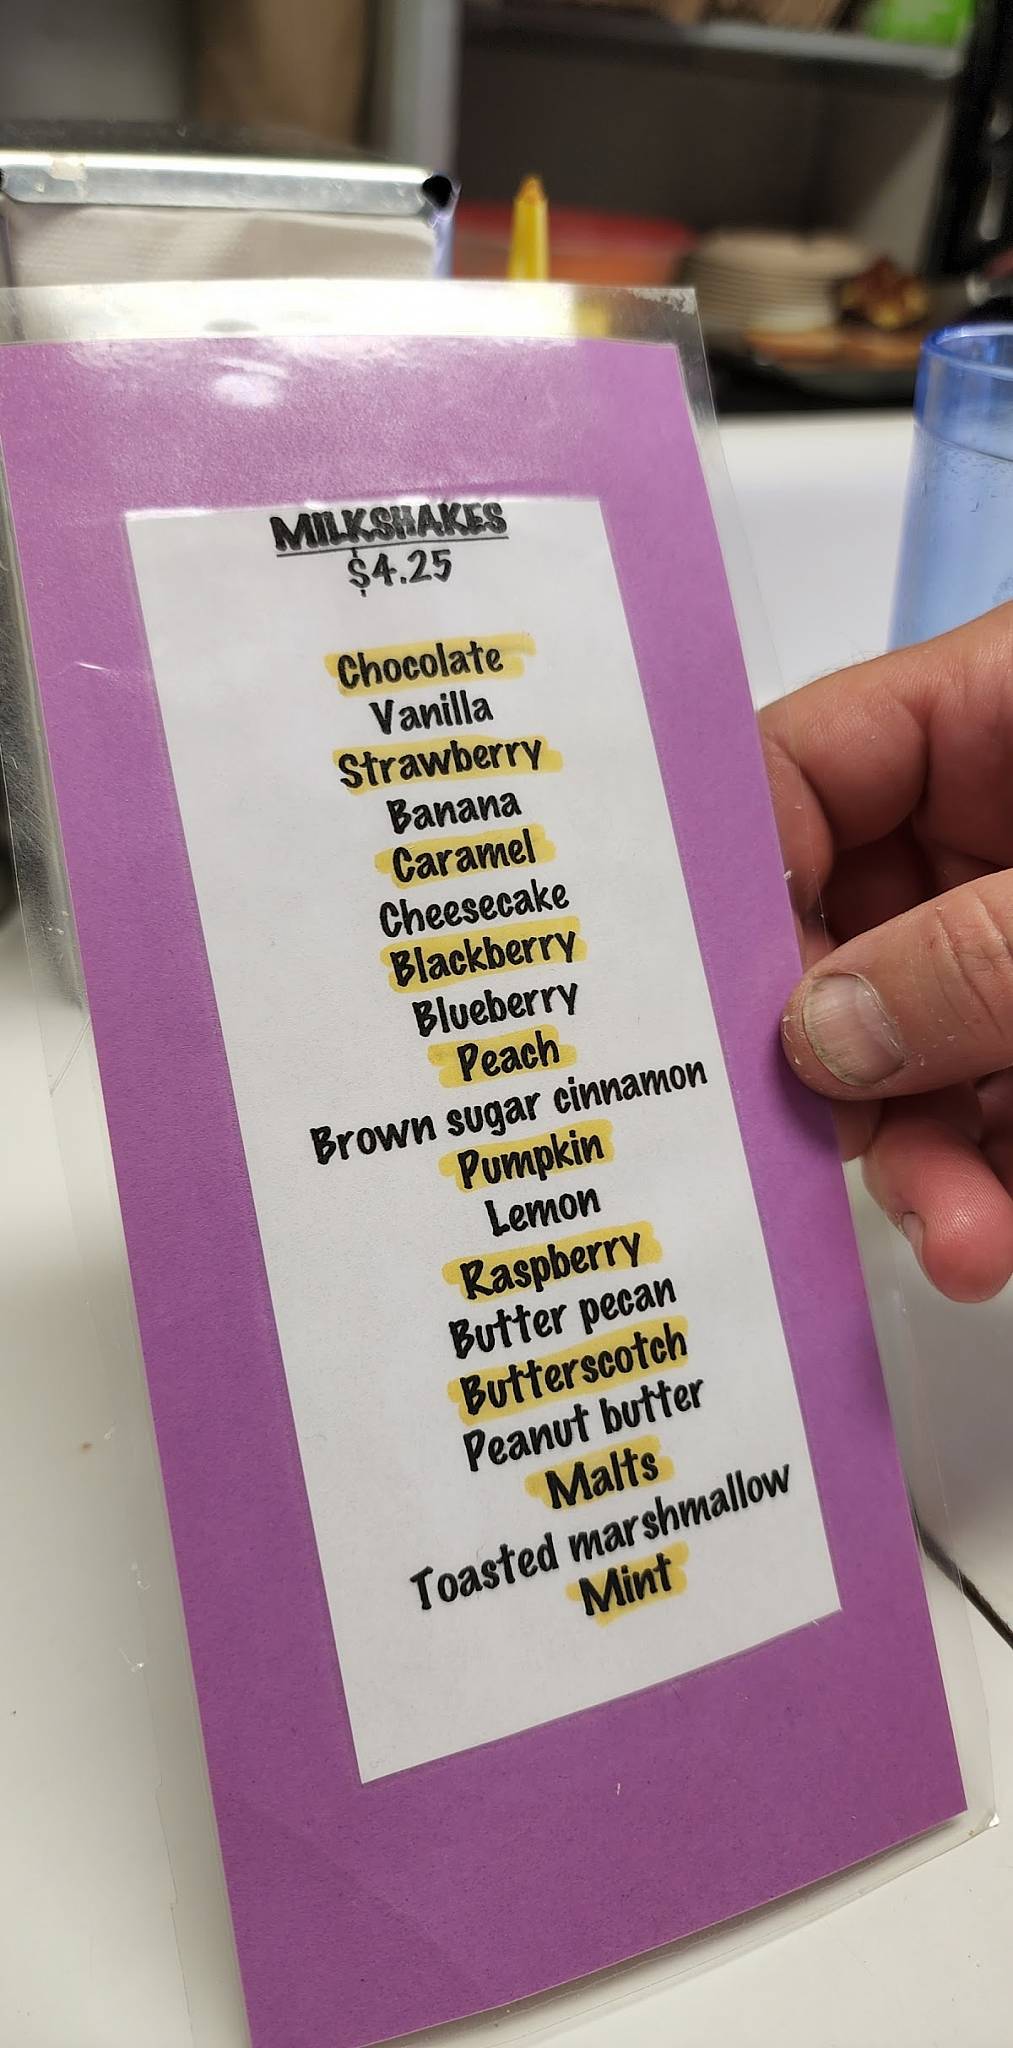 MILKSHAKES
$4.25
Chocolate
Vanilla
Strawberry
Banana
Caramel
Cheesecake
Blackberry
Blueberry
Peach
Brown sugar cinnamon
Pumpkin
Lemon
Raspberry
Butter pecan
Butterscotch
Peanut butter
Malts
Toasted marshmallow
Mint